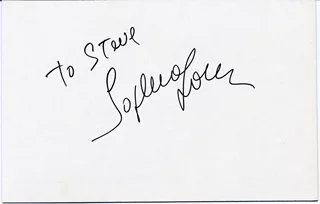 To Steve
Sophia Loren